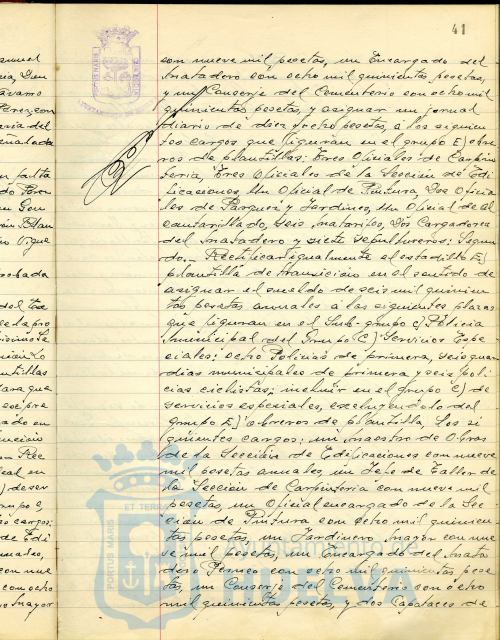 41
con nueve mil pesetas, un Encargado del
Matadero con ocho mil quinientas pesetas,
y un Conserje del Cementerio con ocho mil
quinientas pesetas, y asignar un jornal
diario de diez y ocho pesetas, á los siguien
tes cargos que figuran en el grupo E) obre
ros de plantillas: Tres Oficiales de Carpin
teria, Tres Oficiales de la Sección de Edi
ficaciones, Un Oficial de Pintura, Dos Oficia
les de Parques y Jardines, Un Oficial de Al
cantarillado, seis Matarifes, Dos Cargadores
del Matadero y siete sepultureros: Segun
do.- Rectificar igualmente el estadillo E)
plantilla de transición en el sentido de
asignar el sueldo de seis mil quinien
tas pesetas anuales á las siguientes plazas
que figuran en el Sub-grupo c) Policía
Municipal del Grupo C) Servicios Espe
ciales: ocho Policias de primera, seis guar
dias municipales de primera y seis poli
cias ciclistas; incluir en el grupo C) de
servicios especiales, excluyendolo del
grupo E) obreros de plantilla, los si
guientes cargos: un Maestro de Obras
de la Sección de Edificaciones con nueve
mil pesetas anuales, un Jefe de Taller de
la Sección de Carpinteria con nueve mil
pesetas, un Oficial encargado de la Sec
cion de Pintura con ocho mil quinien
tas pesetas, un Jardinero mayor con nue
ve mil pesetas, un Encargado del Mata
dero Perneo con ocho mil quinientas pese
tas, un Conserje del Cementerio con ocho
mil quinientas pesetas, y dos Capataces de
PORTUS MARIS ET TERRAE
Ayuntamiento de
HUELVA